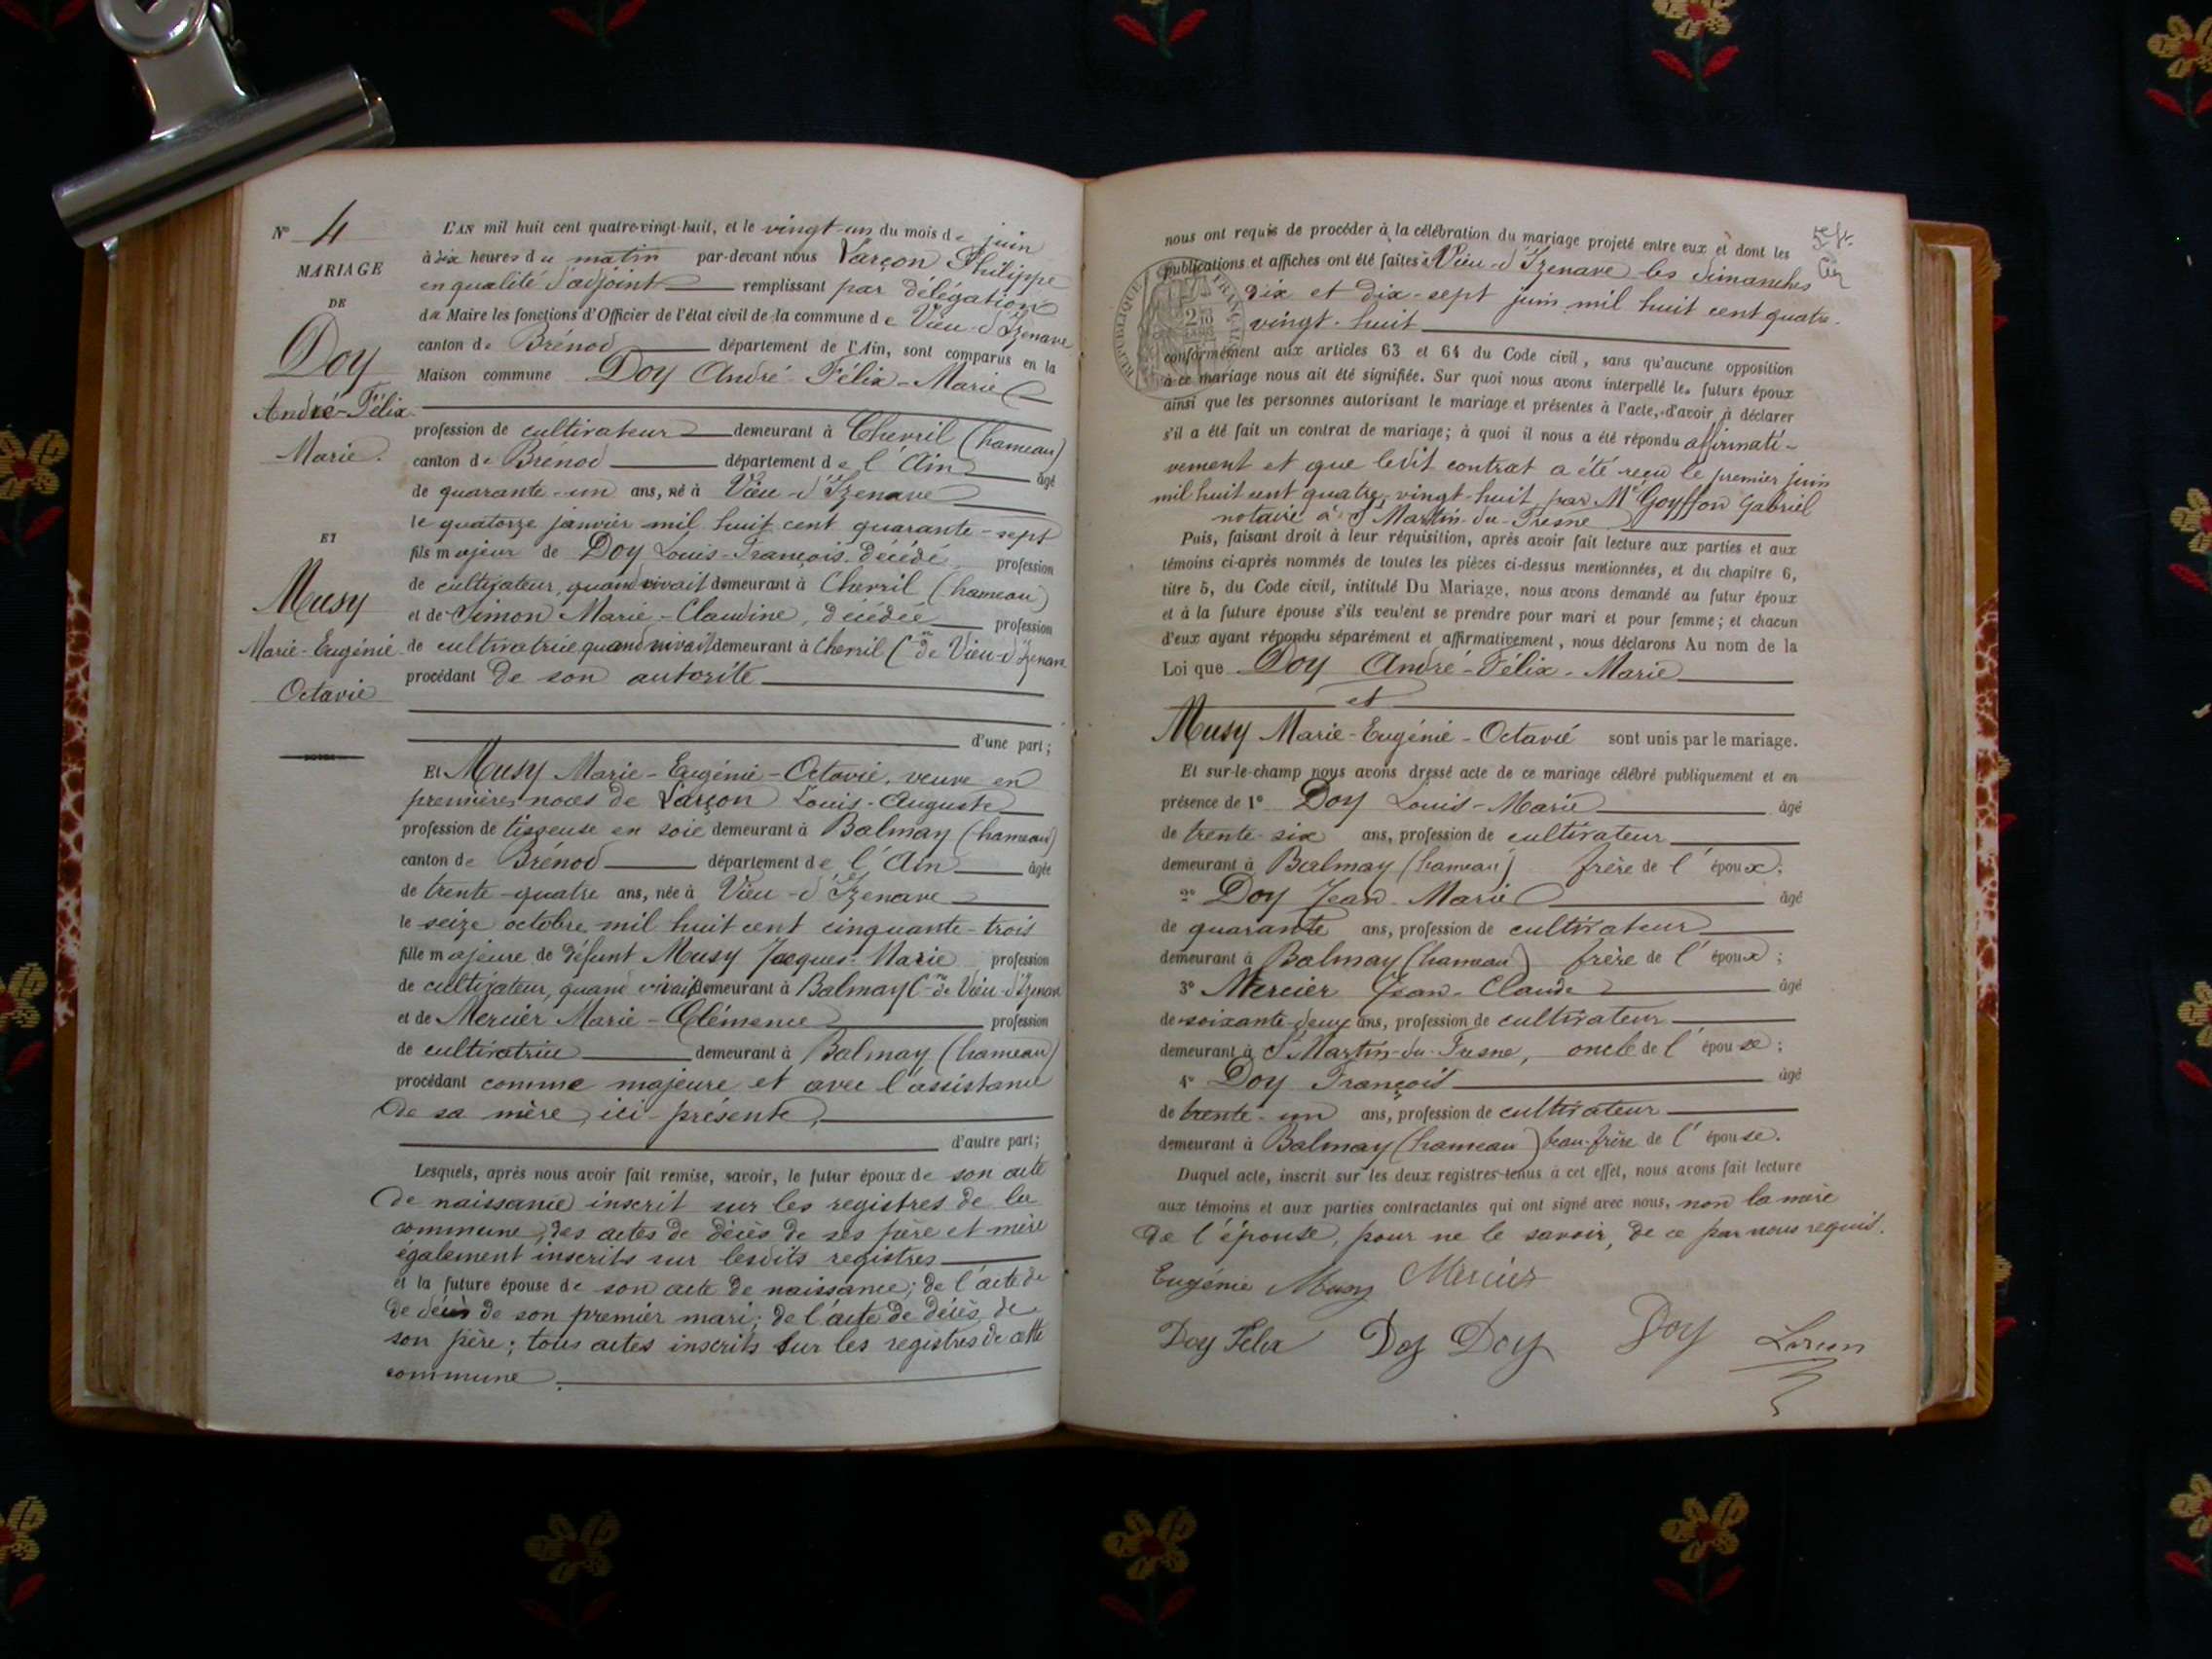 N° 4
MARIAGE
DE
Doy
André-Félix
Marie.
ET
Musy
Marie-Eugénie
Octavie
L'AN mil huit cent quatre-vingt-huit, et le vingt-un du mois de juin
à dix heures du matin par-devant nous Varçon Philippe
en qualité d'adjoint remplissant par délégation
du Maire les fonctions d'Officier de l'état civil de la commune de Vieu-d'Izenave
canton de Brénod département de l'Ain, sont comparus en la
Maison commune Doy André-Félix-Marie
profession de cultivateur demeurant à Chevril (hameau)
canton de Brénod département de l'Ain âgé
de quarante-un ans, né à Vieu-d'Izenave
le quatorze janvier mil huit cent quarante-sept
fils majeur de Doy Louis-François décédé profession
de cultivateur, quand vivait demeurant à Chevril (hameau)
et de Simon Marie-Claudine, décédée profession
de cultivatrice quand vivait demeurant à Chevril (ne de Vieu-d'Izenave
procédant de son autorité
d'une part;
Et Musy Marie-Eugénie-Octavie, veuve en
premières noces de Varçon Louis-Auguste
profession de tisseuse en soie demeurant à Balmay (hameau)
canton de Brénod département de l'Ain âgée
de trente-quatre ans, née à Vieu-d'Izenave
le seize octobre mil huit cent cinquante-trois
fille majeure de défunt Musy Jacques-Marie profession
de cultivateur, quand vivait demeurant à Balmay (ne de Vieu-d'Izenave
et de Mercier Marie-Clémence profession
de cultivatrice demeurant à Balmay (hameau)
procédant comme majeure et avec l'assistance
de sa mère, ici présente,
d'autre part;
Lesquels, après nous avoir fait remise, savoir, le futur époux de son acte
de naissance inscrit sur les registres de la
commune, des actes de décès de ses père et mère
également inscrits sur lesdits registres
et la future épouse de son acte de naissance; de l'acte de
de décès de son premier mari; de l'acte de décès de
son père; tous actes inscrits sur les registres de cette
commune.
nous ont requis de procéder à la célébration du mariage projeté entre eux et dont les
publications et affiches ont été faites à Vieu-d'Izenave les dimanches
dix et dix-sept juin mil huit cent quatre-
vingt-huit
RÉPUBLIQUE FRANÇAISE
conformément aux articles 63 et 64 du Code civil, sans qu'aucune opposition
à ce mariage nous ait été signifiée. Sur quoi nous avons interpellé les futurs époux
ainsi que les personnes autorisant le mariage et présentes à l'acte, d'avoir à déclarer
s'il a été fait un contrat de mariage; à quoi il nous a été répondu affirmati-
vement et que ledit contrat a été reçu le premier juin
mil huit cent quatre-vingt-huit par Me Goyffon Gabriel
notaire à St Martin-du-Fresne
Puis, faisant droit à leur réquisition, après avoir fait lecture aux parties et aux
témoins ci-après nommés de toutes les pièces ci-dessus mentionnées, et du chapitre 6,
titre 5, du Code civil, intitulé Du Mariage, nous avons demandé au futur époux
et à la future épouse s'ils veulent se prendre pour mari et pour femme; et chacun
d'eux ayant répondu séparément et affirmativement, nous déclarons Au nom de la
Loi que Doy André-Félix-Marie
et
Musy Marie-Eugénie-Octavie sont unis par le mariage.
Et sur-le-champ nous avons dressé acte de ce mariage célébré publiquement et en
présence de 1° Doy Louis-Marie âgé
de trente-six ans, profession de cultivateur
demeurant à Balmay (hameau) frère de l'époux;
2° Doy Jean-Marie âgé
de quarante ans, profession de cultivateur
demeurant à Balmay (hameau) frère de l'époux;
3° Mercier Jean-Claude âgé
de soixante-deux ans, profession de cultivateur
demeurant à St Martin-du-Fresne, oncle de l'épouse;
4° Doy François âgé
de trente-un ans, profession de cultivateur
demeurant à Balmay (hameau) beau-frère de l'épouse.
Duquel acte, inscrit sur les deux registres tenus à cet effet, nous avons fait lecture
aux témoins et aux parties contractantes qui ont signé avec nous, non la mère
de l'épouse, pour ne le savoir, de ce par nous requis.
Eugénie Musy Mercier
Doy Felix Doy Doy Doy